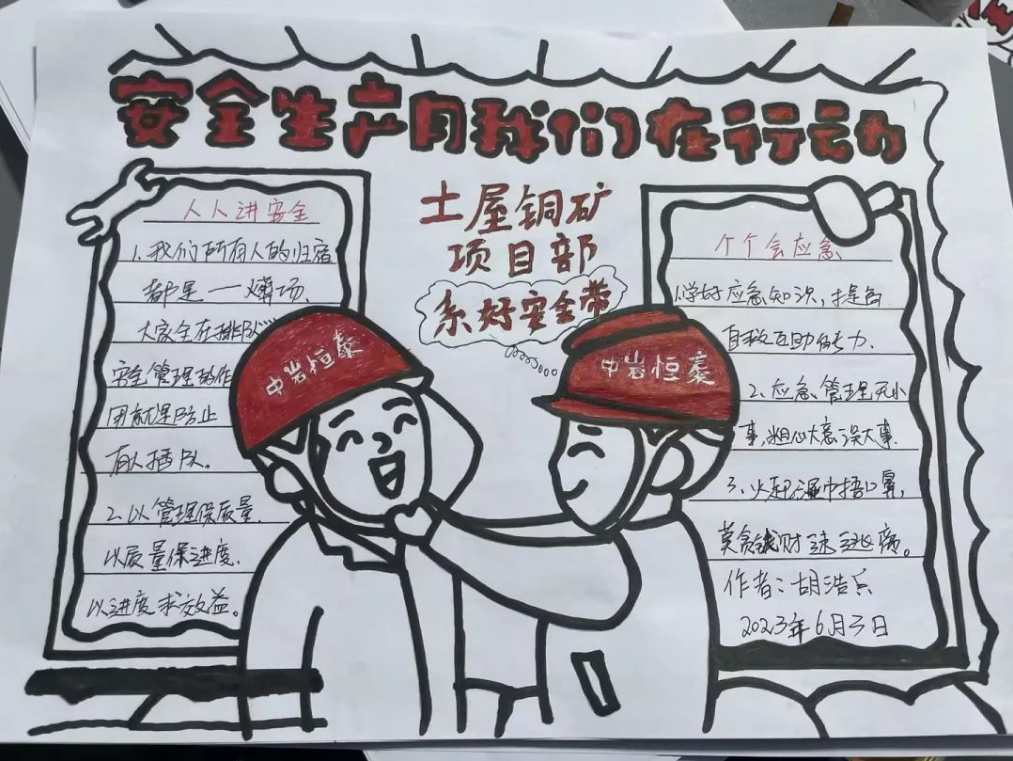 安全生产月我们在行动
土屋铜矿
项目部
系好安全带
人人讲安全
1.我们所有人的归宿
都是一火葬场.
大家全在排队
安全管理的作
用就是防止
有人插队。
2.以管理保质量,
以质量保进度.
以进度求效益。
中岩恒泰
中岩恒泰
个个会应急
1.学好应急知识,提高
自救互助能力.
2.应急管理无小
事,粗心大意误大事.
3.火起湿巾捂口鼻,
莫贪钱财速逃离。
作者:胡浩兵
2023年6月3日